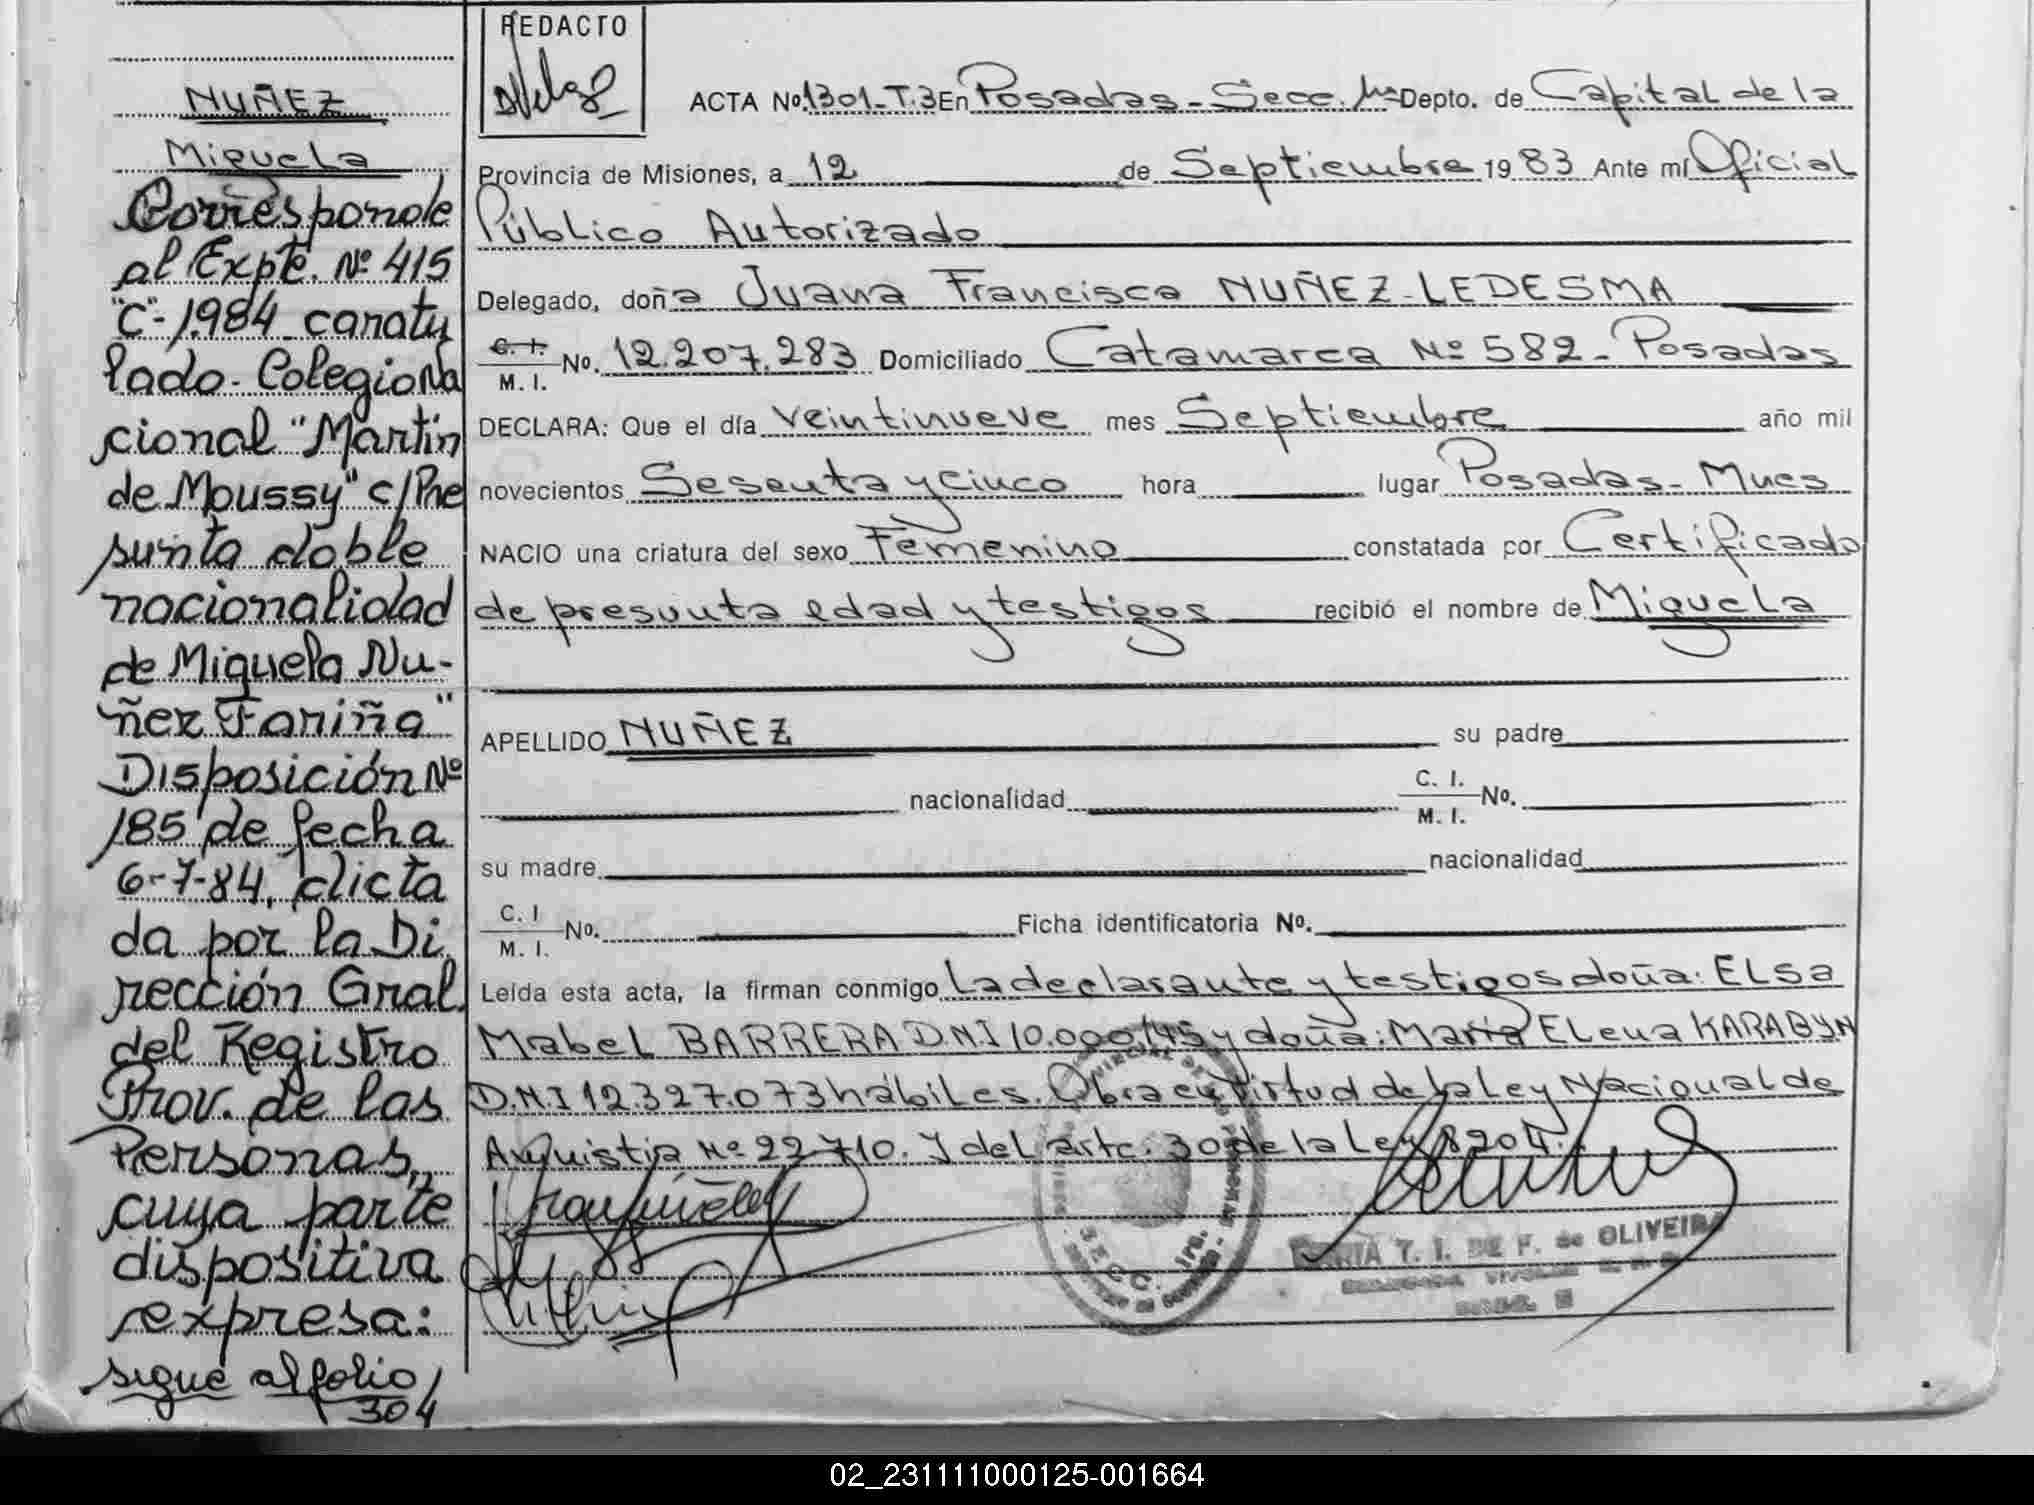 NUÑEZ
Miguela
Corresponde
al Expte. Nº 415
"C"-1984 caratu
lado. Colegio Na
cional "Martín
de Moussy" c/Pre
sunta doble
nacionalidad
de Miguela Nu-
ñez Fariña"
Disposición Nº
185 de fecha
6-7-84, dicta
da por la Di
rección Gral.
del Registro
Prov. de las
Personas,
cuya parte
dispositiva
expresa:
sigue al folio
304
REDACTO
ACTA Nº 1301-T.3 En Posadas-Secc. 1ra Depto. de Capital de la
Provincia de Misiones, a 12 de Septiembre 1983 Ante mí Oficial
Público Autorizado
Delegado, doña Juana Francisca NUÑEZ-LEDESMA
C. I. M. I. No. 12.207.283 Domiciliado Catamarca Nº 582-Posadas
DECLARA: Que el día veintinueve mes Septiembre año mil
novecientos Sesenta y cinco hora lugar Posadas-Mnes
NACIO una criatura del sexo Femenino constatada por Certificado
de presunta edad y testigos recibió el nombre de Miguela
APELLIDO NUÑEZ su padre
nacionalidad C. I. M. I. No.
su madre nacionalidad
C. I M. I. No. Ficha identificatoria No.
Leída esta acta, la firman conmigo La declarante y testigos doña: ELsa
Mabel BARRERA D.N.I 10.000.145 y doña: María ELena KARABYN
D.N.I 12.327.073 hábiles. Obra en virtud de la Ley Nacional de
Amnistia Nº 22.710. Y del artc. 30 de la Ley 8204.
SECC. 1ra.
T. I. DE F. de OLIVEIRA
02_231111000125-001664